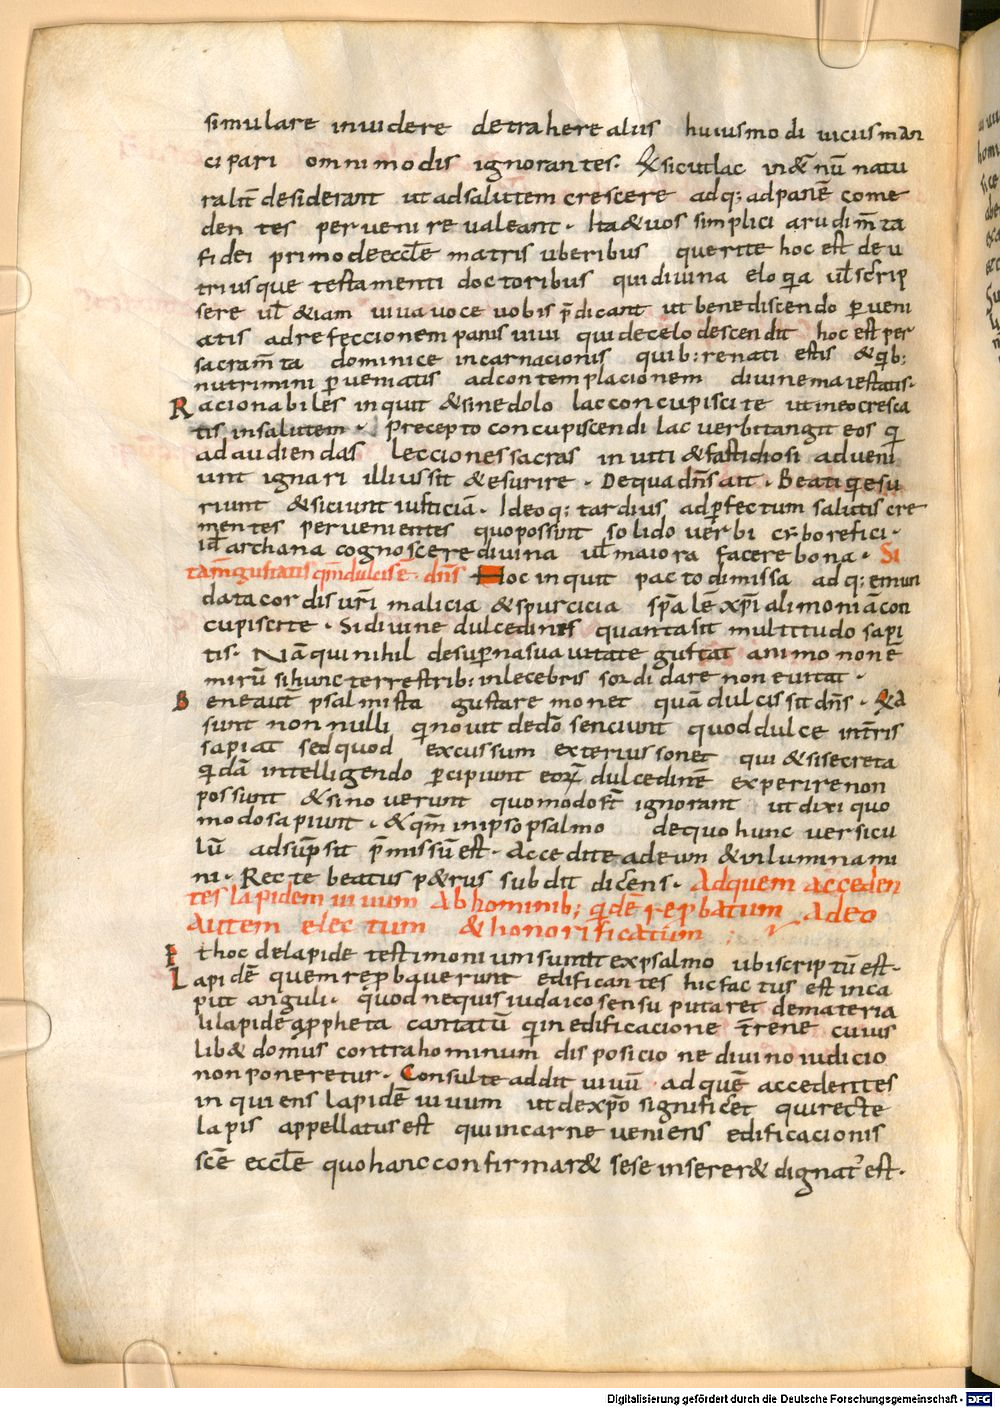 simulare inuidere detrahere aliis huiusmodi uicius man
cipari omnimodis ignorantes. & sicut lac in&nū natu
ralit̄ desiderant ut ad salutem crescere adq; ad panē come
den tes peruenire ualeant. Ita & uos simplici a rudim̄ta
fidei primo de eccłe matris uberibus querite hoc est de u
triusque testamenti doctoribus qui diuina eloq̄a uł scrip
sere uł &iam uiua uoce uobis p̄dicant ut bene discendo ꝑueni
atis ad refeccionem panis uiui qui de celo descendit hoc est per
sacram̄ta dominice incarnacionis quib; renati estis & q̄b;
nutrimini ꝑueniatis ad contemplacionem diuine maiestatis.
Racionabiles inquit & sine dolo lac concupiscite ut in eo cresca
tis in salutem. Precepto concupiscendi lac uerbi tangit eos q̄
ad audiendas lecciones sacras inuiti & fastidiosi adueni
unt ignari illius sit & esurire. De qua dn̄s ait. Beati q̄ esu
riunt & siciunt iusticiā. Ideoq; tardius ad ꝑfectum salutis cre
mentes peruenientes quo possint solido uerbi cybo refici.
id archana cognoscere diuina uł maiora facere bona. Si
tam̄ gustatis qm̄ dulcis ē dn̄s Hoc inquit pacto dimissa adq; emun
data cordis ur̄i malicia & spurcicia sp̄alē xp̄i alimoniā con
cupiscite. Si diuine dulcedinis quanta sit multitudo sapi
tis. Nā qui nihil de suꝑna suauitate gustat animo non ē
mirū si hunc terrestrib; inlecebris sordidare non euitat.
Bene aut̄ psalmista gustare monet quā dulcis sit dn̄s. & a
sunt non nulli q̄ nouit de dō senciunt quod dulce int̄ris
sapiat sed quod excussum exterius sonet qui & si secreta
q̄dā intelligendo ꝑcipiunt eoꝝ dulcedinē experire non
possunt & si nouerunt quomodo st̄ ignorant ut dixi quo
modo sapiunt. & qm̄ in ipso psalmo de quo hunc uersicu
lū adsūpsit p̄missū est. Accedite ad eum & inluminami
ni. Recte beatus p&rus subdit dicens. Ad quem acceden
tes lapidem uiuum ab hominib; q̄dē rep̄batum A deo
autem electum & honorificatum
Et hoc de lapide testimonium sumit ex psalmo ubi scriptū est.
Lapidē quem rep̄bauerunt edificantes hic factus est in ca
put anguli. quod nequis iudaico sensu putaret de materia
li lapide a ꝓpheta cantatū q̄ in edificacione t̄rene cuius
lib& domus contra hominum disposicione diuino iudicio
non poneretur. Consulte addit uiuū ad quē accedentes
inquiens lapidē uiuum ut de xp̄o significet qui recte
lapis appellatus est qui in carne ueniens edificacionis
scē eccłe quo hanc confirmar& sese inserer& dignat' est.
Digitalisierung gefördert durch die Deutsche Forschungsgemeinschaft - DFG